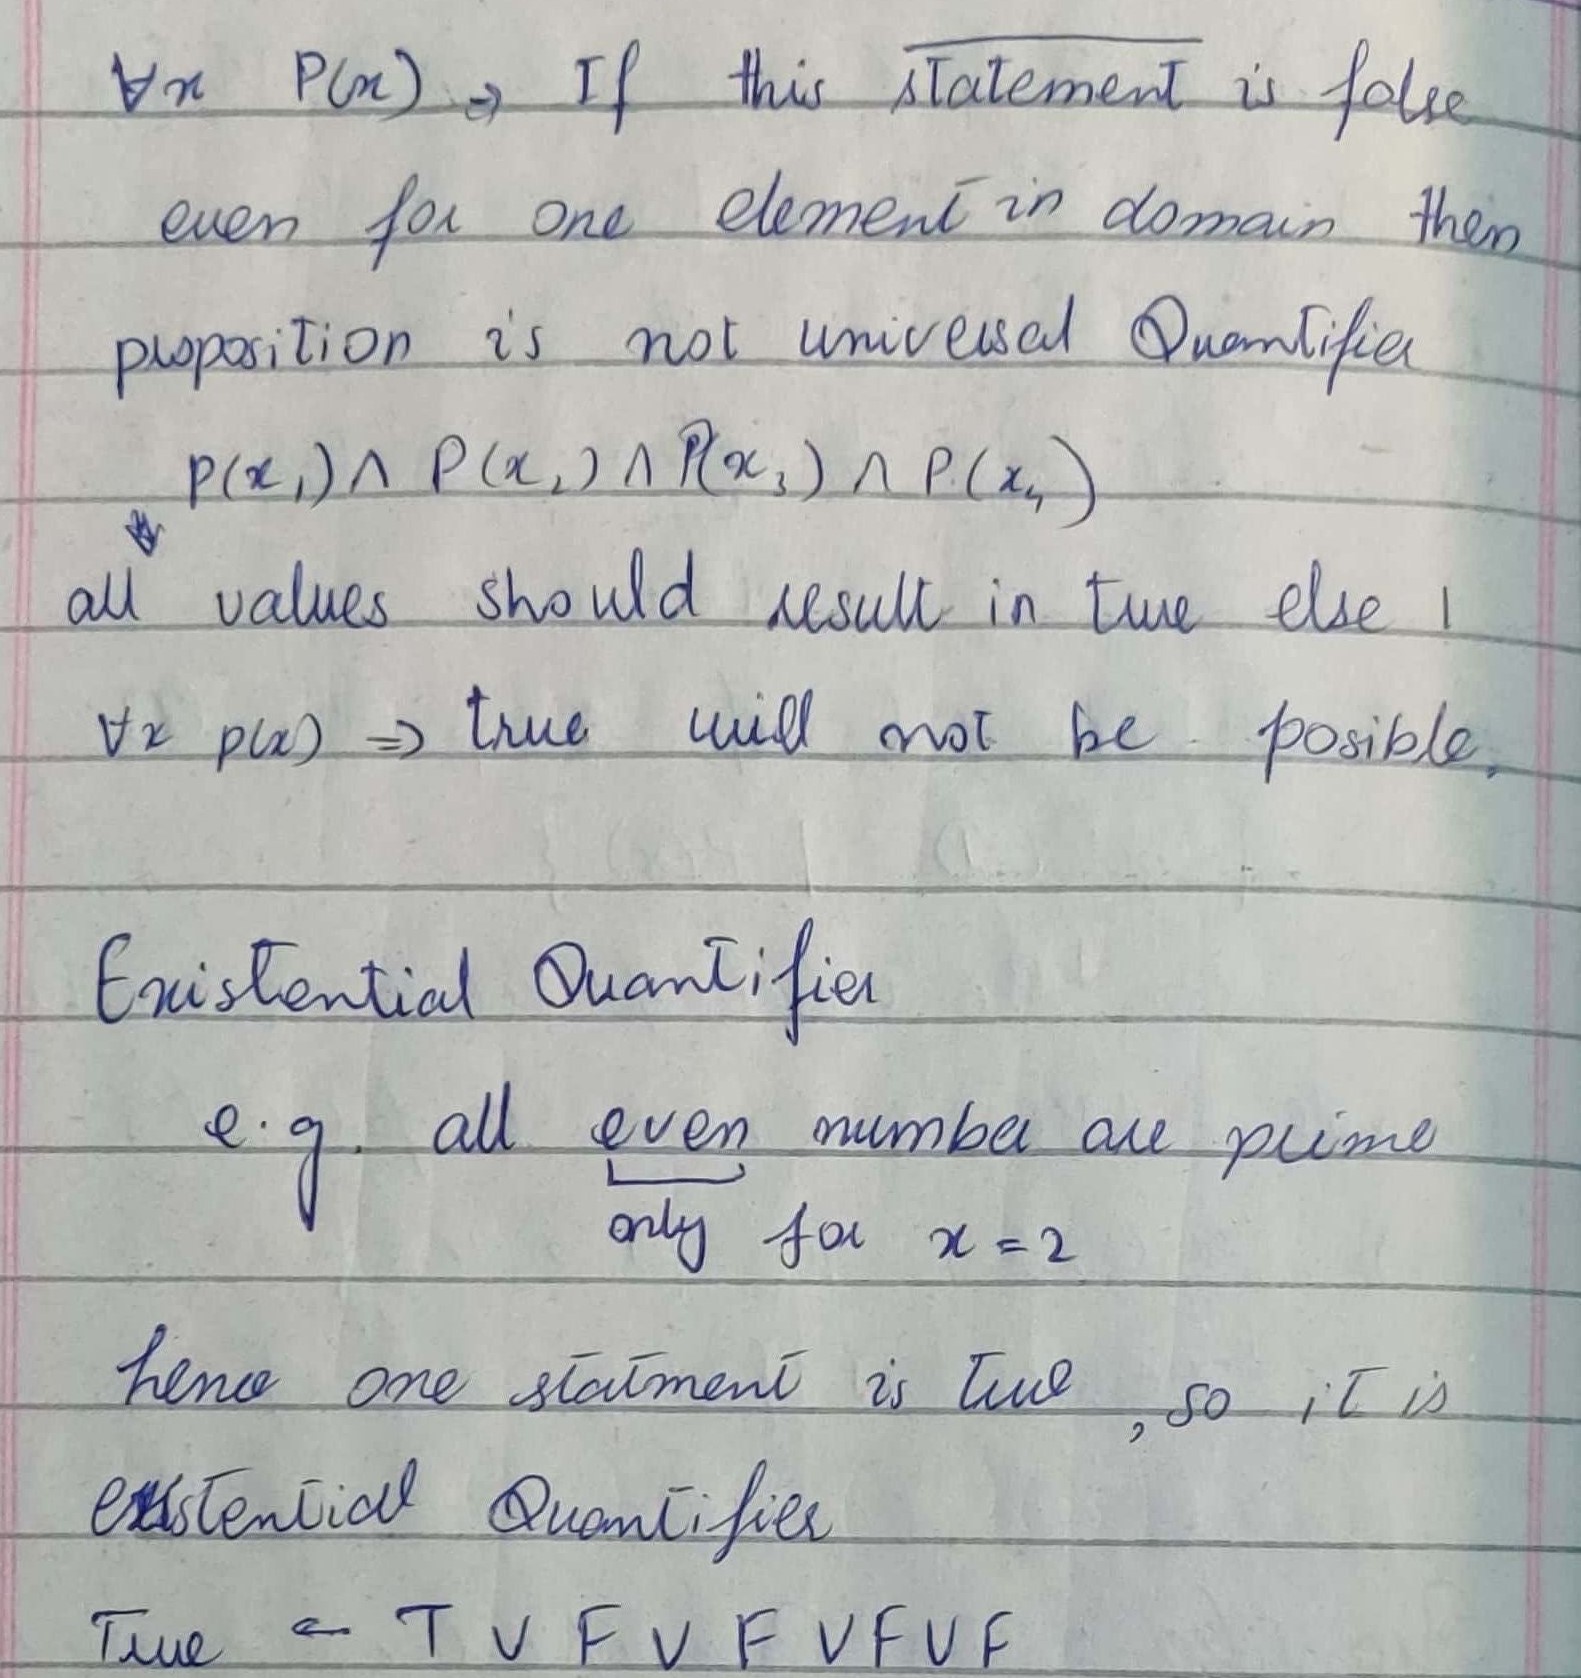 ∀x P(x) ⇒ If this statement is false
even for one element in domain then
proposition is not universal Quantifier
P(x₁) ∧ P(x₂) ∧ P(x₃) ∧ P(x₄)
all values should result in true else
∀x p(x) ⇒ true will not be posible.
Existential Quantifier
e.g. all even number are prime
only for x = 2
hence one statment is true, so it is
existential Quantifier
True ← T ∨ F ∨ F ∨ F ∨ F